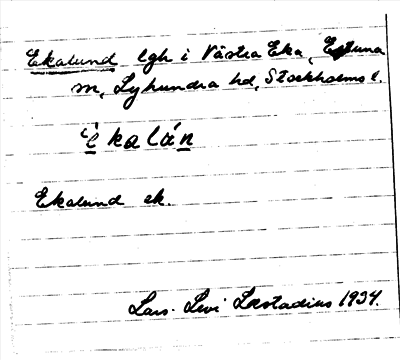 Ekalund lgh i Västra Eka, Estuna
sn, Lyhundra hd, Stockholms l.
è kalán
Ekalund ek.
Lars-Levi Læstadius 1934.